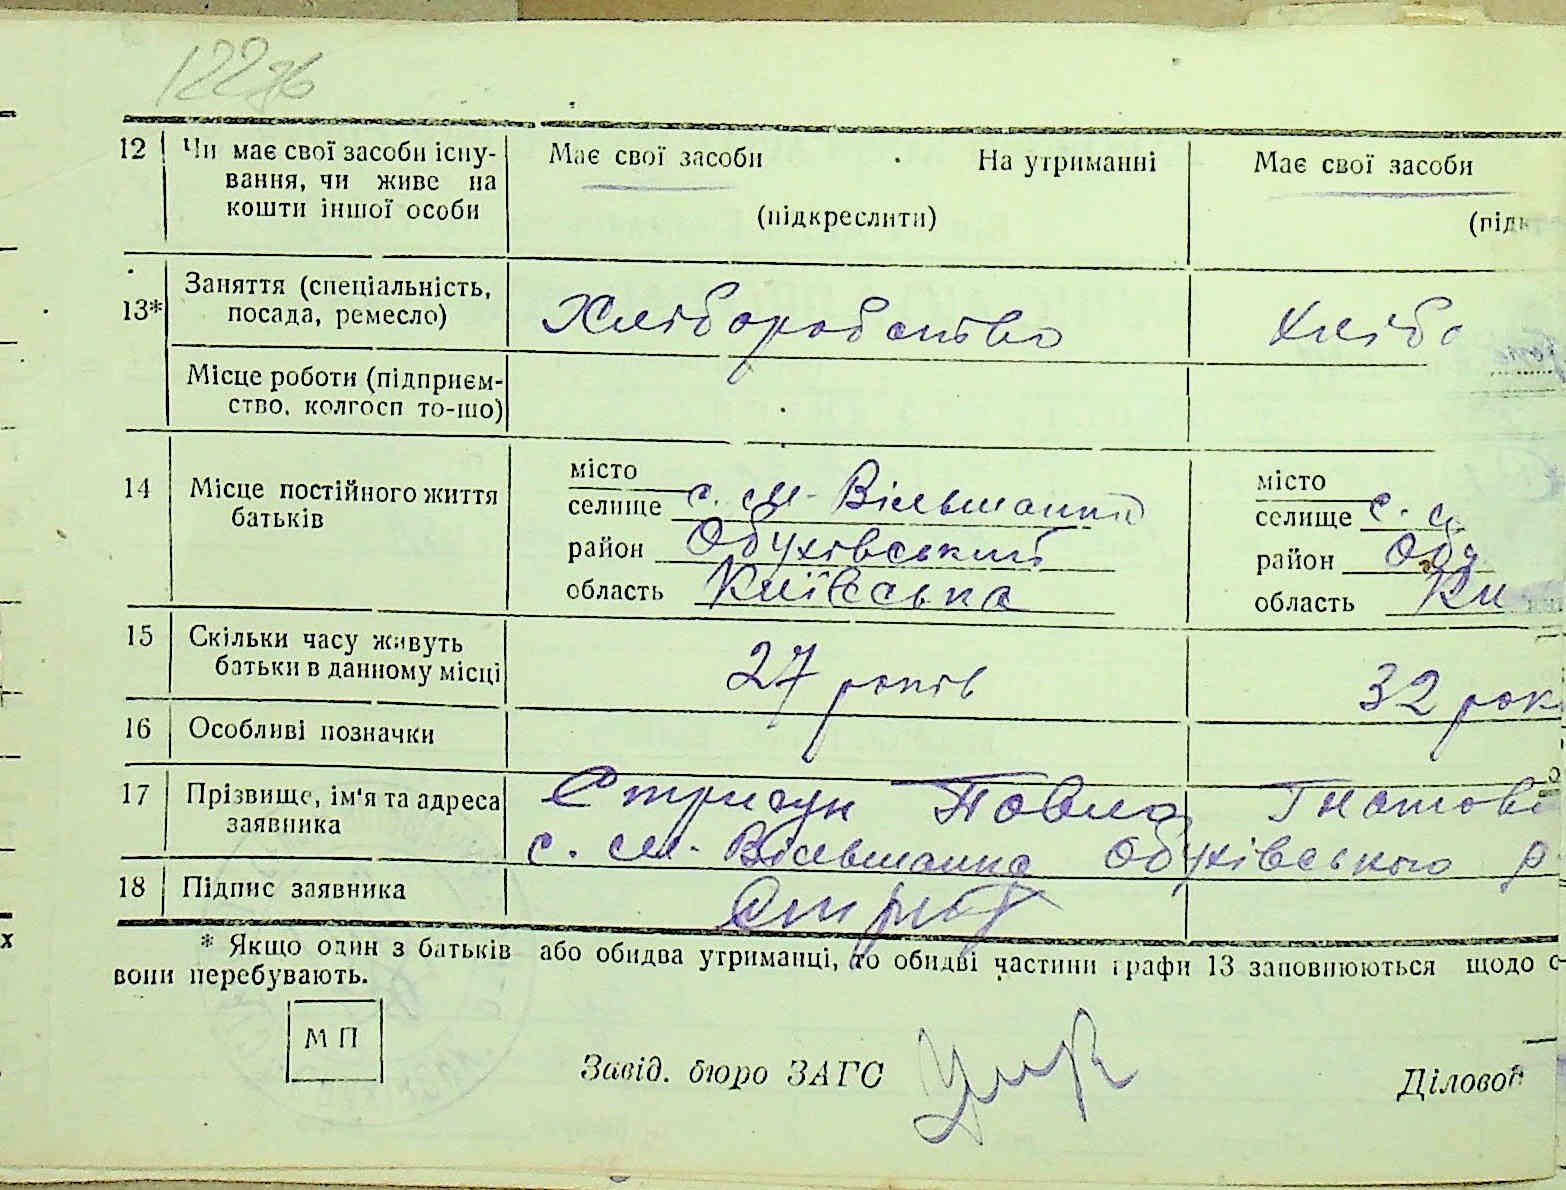 122зв
12 Чи має свої засоби існу- Має свої засоби На утриманні Має свої засоби
вання, чи живе на
кошти іншої особи (підкреслити) (підк
13* Заняття (спеціальність, Хліборобство Хлібо
посада, ремесло)
Місце роботи (підприєм-
ство, колгосп то-що)
місто місто
14 Місце постійного життя селище с. М-Вільшанка селище с.
батьків район Обухівський район Обу
область Київська область Ки
15 Скільки часу живуть 27 років 32 рок
батьки в данному місці
16 Особливі позначки
17 Прізвище, ім'я та адреса Стригун Павло Гнатови
заявника с. М-Вільшанка Обухівського р
18 Підпис заявника
* Якщо один з батьків або обидва утриманці, то обидві частини графи 13 заповнюються щодо о
вони перебувають. х
М П
Завід. бюро ЗАГС Діловод